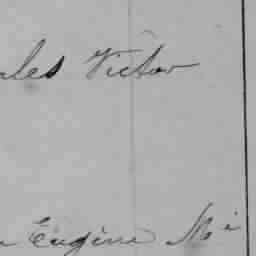 ales Victor
Eugène Mi